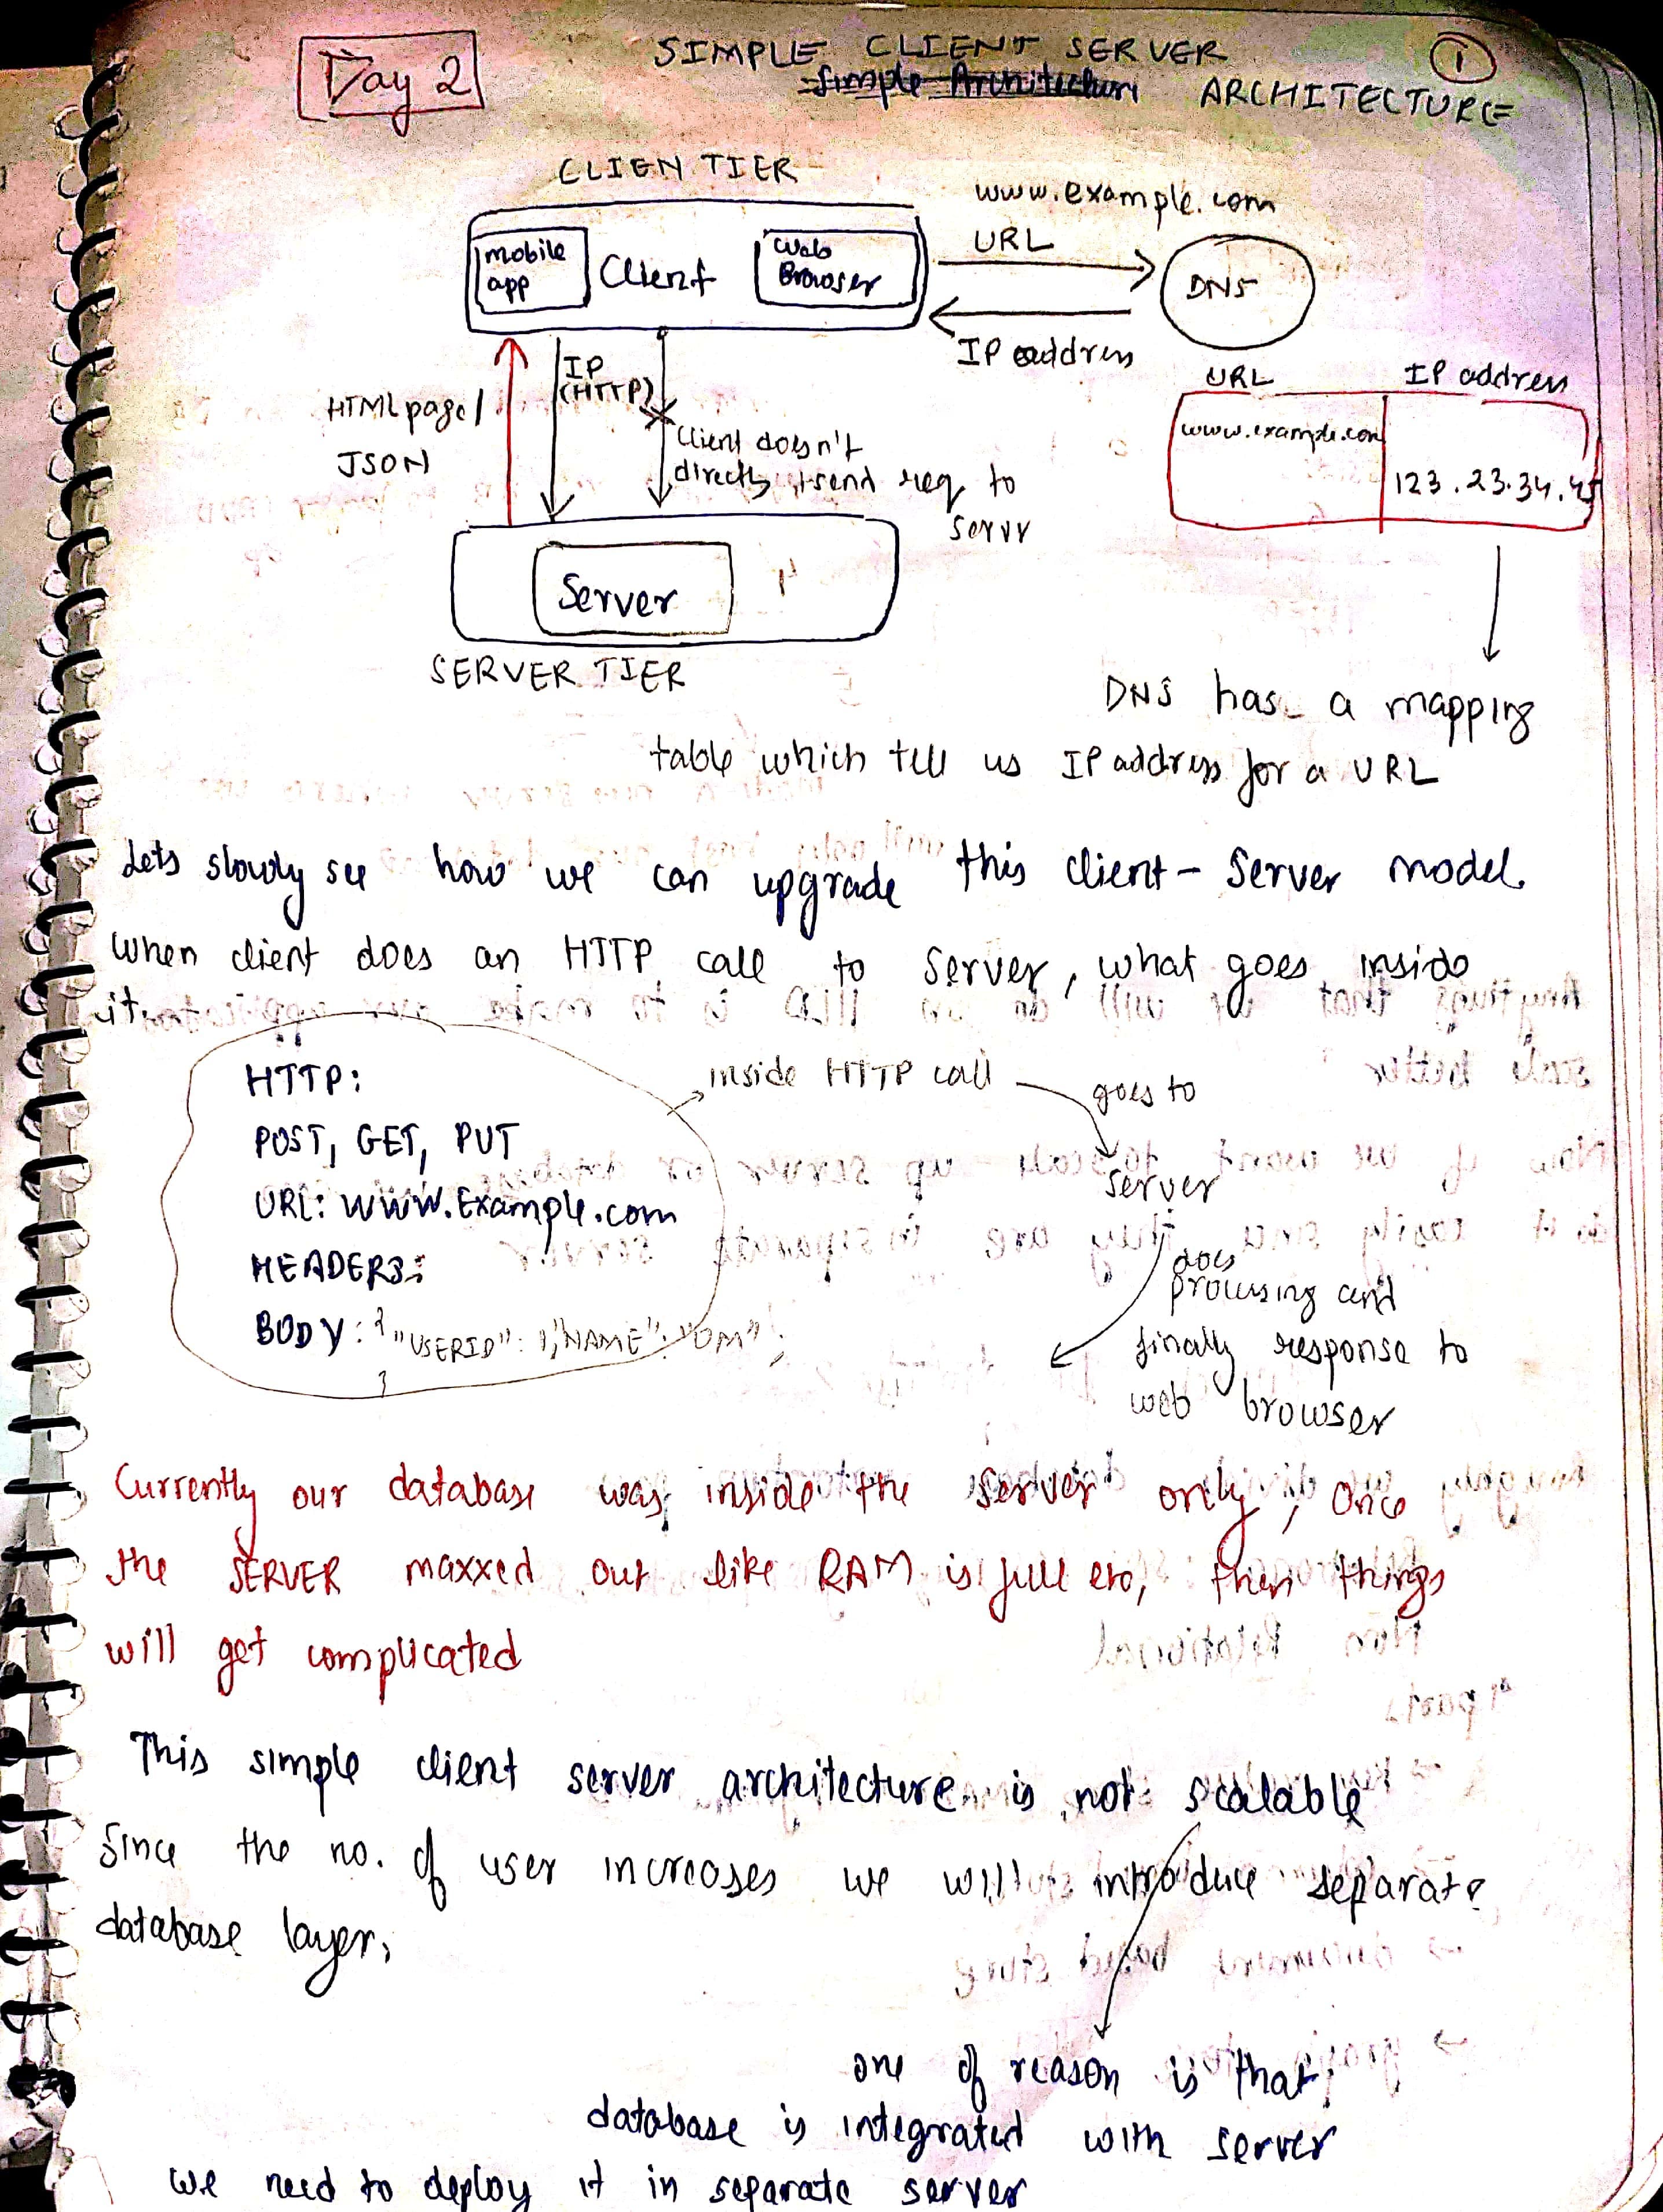 Day 2
SIMPLE CLIENT SERVER
1
Simple Architecture
ARCHITECTURE
CLIEN TIER
www.example.com
URL
mobile
app
Client
Web
Browser
DNS
IP address
HTML page /
JSON
IP
(HTTP)
Client doesn't
directly send req to
servr
URL
IP address
www.example.com
123.23.34.45
Server
SERVER TIER
DNS has a mapping
table which tell us IP address for a URL
Lets slowly see how we can upgrade this client - Server model
when client does an HTTP call to Server, what goes inside
it.
HTTP:
POST, GET, PUT
URL: www.Example.com
HEADERS:
BODY: { "USERID": 1, "NAME": "OM"
}
inside HTTP call
goes to
server
does
processing and
finally response to
web browser
Currently our database was inside the Server only, once
the SERVER maxxed out like RAM is full etc, then things
will get complicated
This simple client server architecture is not scalable
Since the no. of user increases we will introduce separate
database layer.
one of reason is that
database is integrated with server
we need to deploy it in separate server